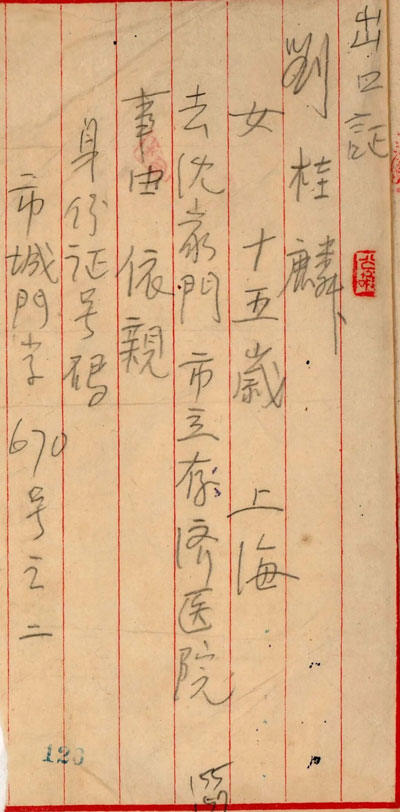 出口証
劉桂麟
女 十五歲 上海
去沈家門 市立存济医院
事由 依親
身份证号码
市城門字670号之二
126